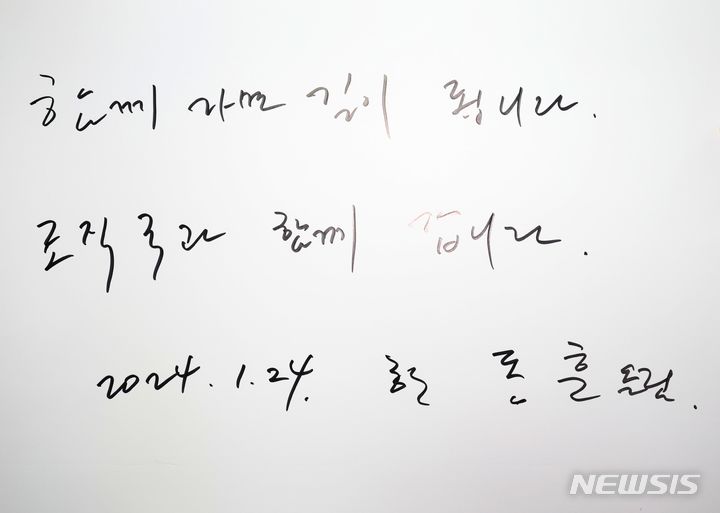 함께 가면 길이 됩니다.
조직국과 함께 갑니다.
2024.1.24. 한동훈 드림.
NEWSIS